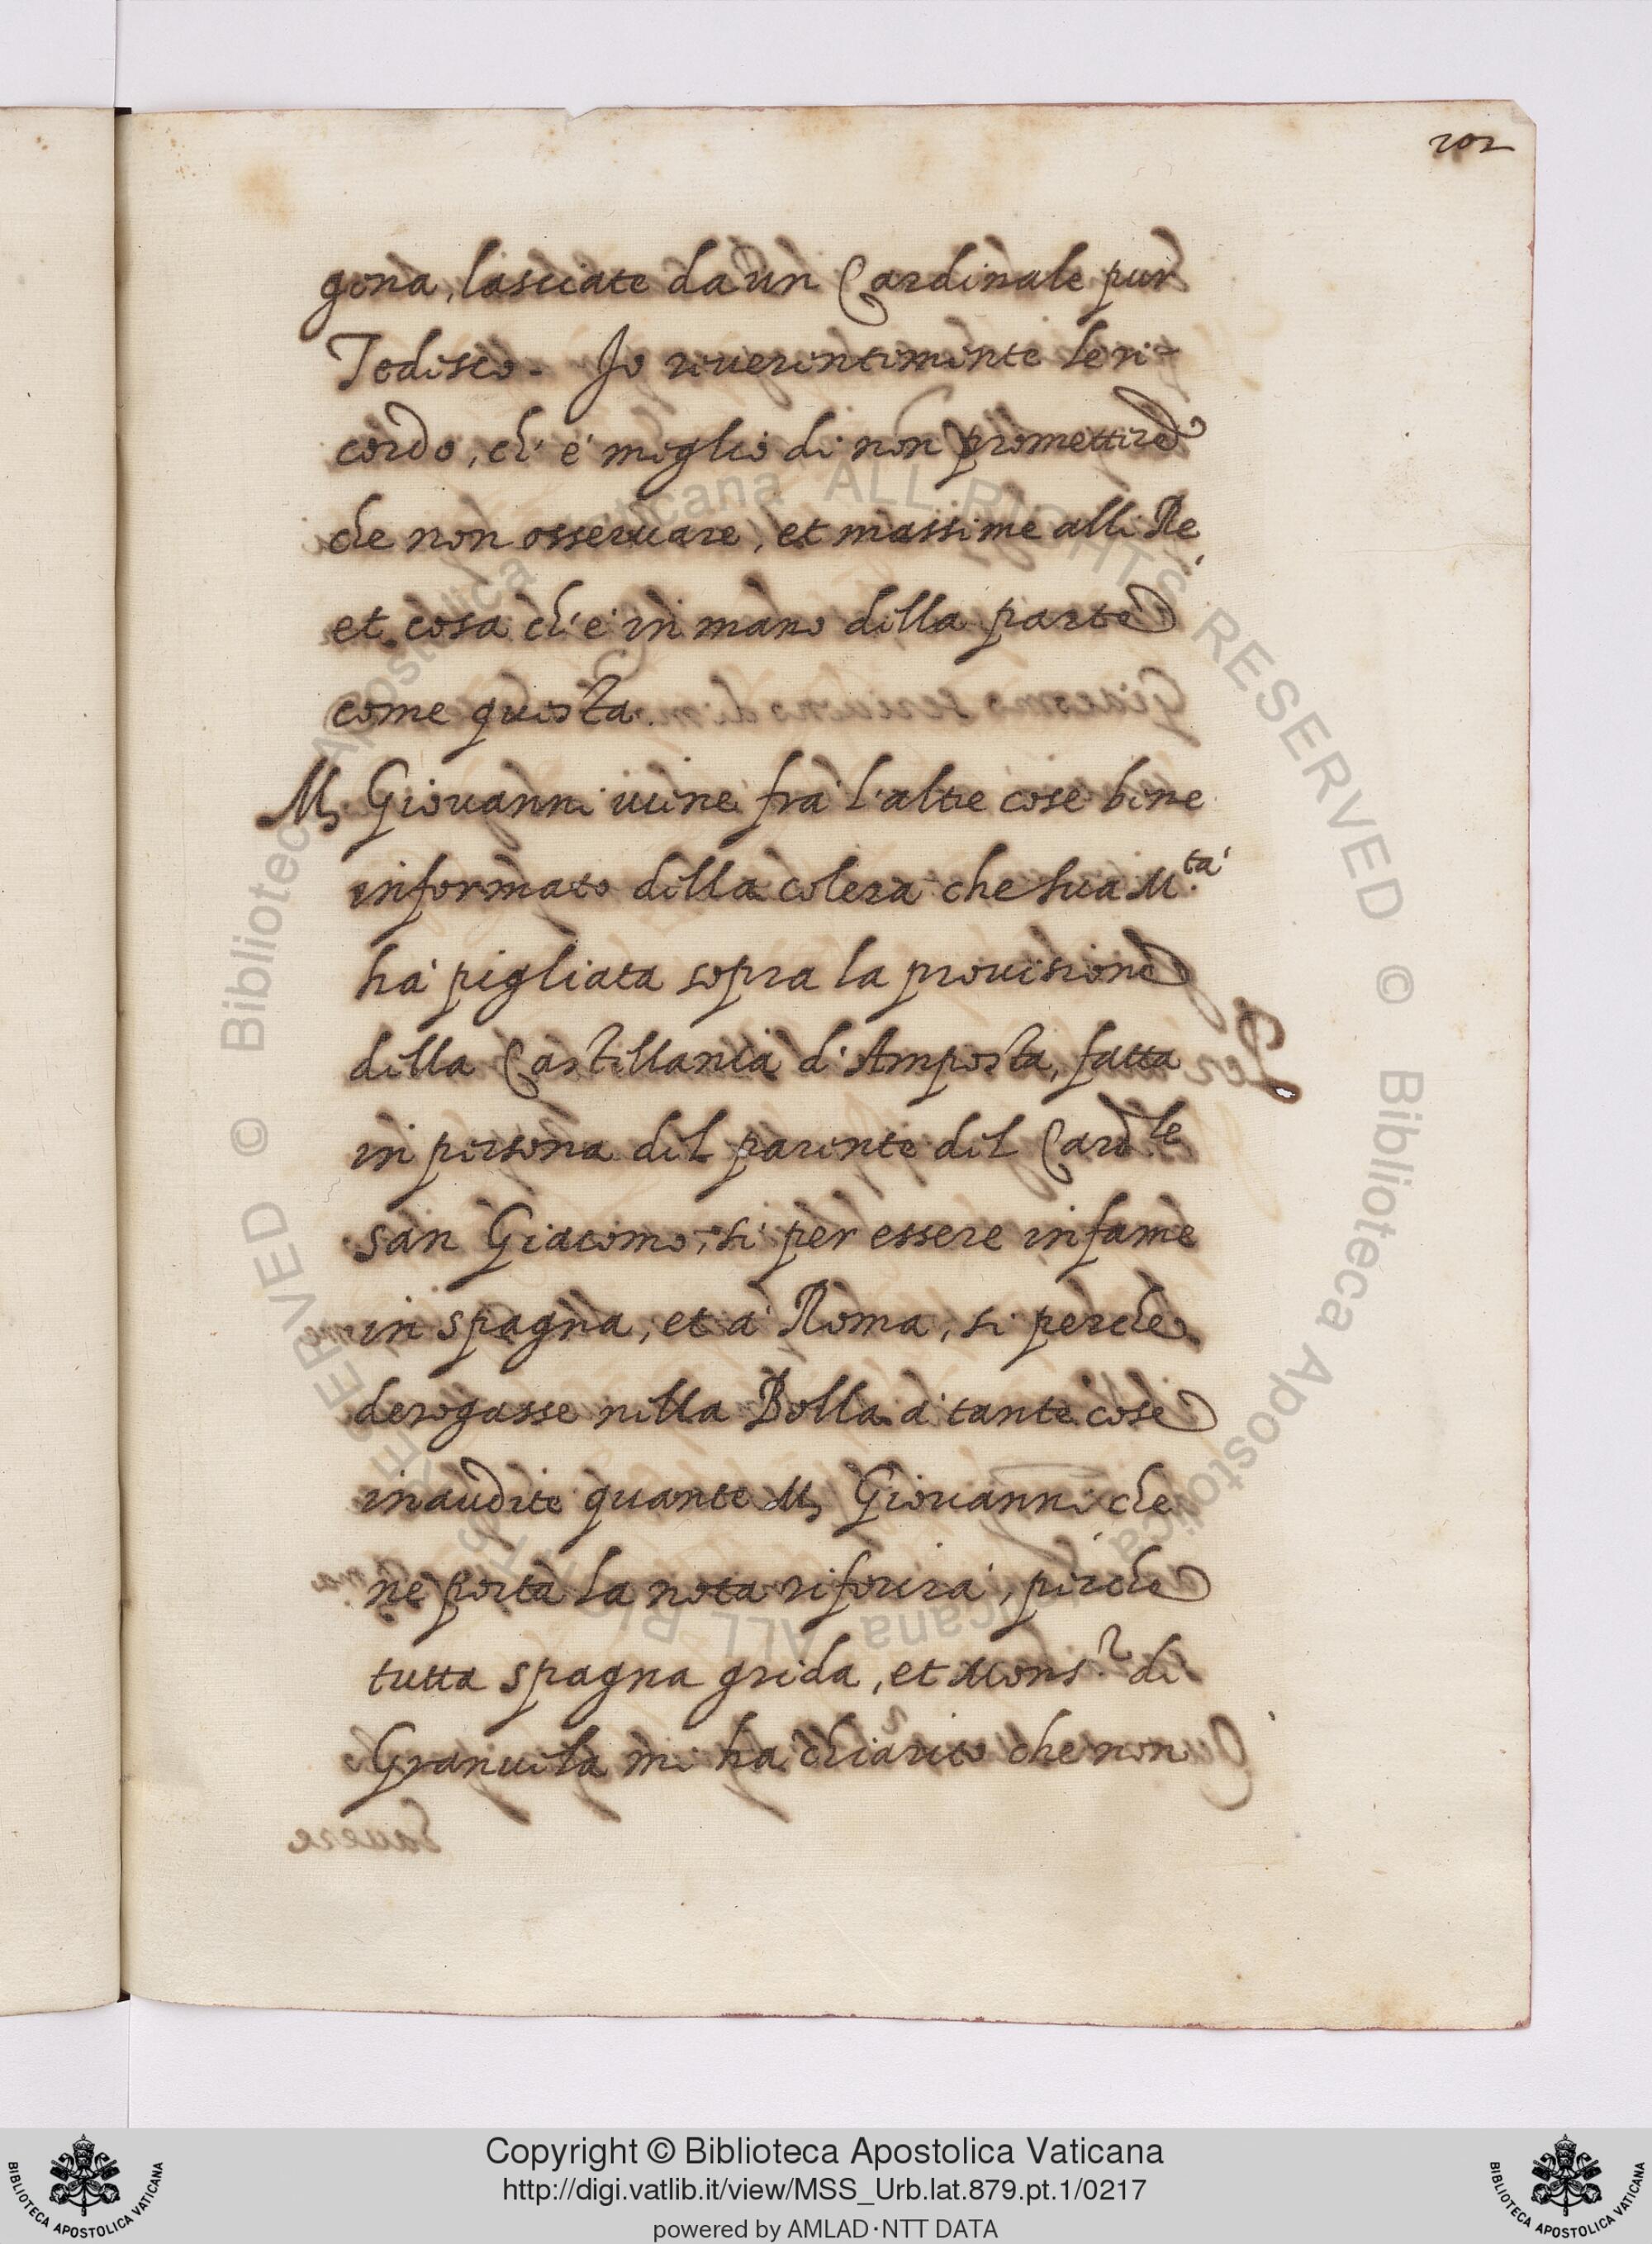 202
gona, lasciate da un Cardinale pur
Todisco. Io reuerentemente le ri-
cordo, ch'è meglio di non promettere
che non osseruare, et massime alli Re
et cosa ch'è in mano della parte
come questa.
M. Giouanni uiene frà l'altre cose bene
informato della colera che sua M.tà
hà pigliata sopra la prouisione
della Castellania d'Amposta, fatta
in persona del parente del Card.le
san Giacomo, si per essere infame
in spagna, et à Roma, si perche
derogasse nella Bolla à tante cose
inaudite quante M. Giouanni che
ne porta la nota riferirà, perche
tutta spagna grida, et Mons.r di
Granuela mi hà chiarito che non
Copyright © Biblioteca Apostolica Vaticana
http://digi.vatlib.it/view/MSS_Urb.lat.879.pt.1/0217
powered by AMLAD·NTT DATA
BIBLIOTECA APOSTOLICA VATICANA
BIBLIOTECA APOSTOLICA VATICANA
© Biblioteca Apostolica Vaticana ALL RIGHTS RESERVED © Biblioteca Apostolica Vaticana ALL RIGHTS RESERVED